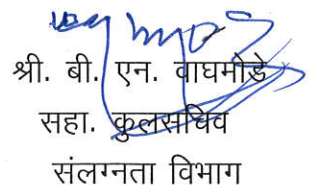 श्री. बी. एन. वाघमोडे
सहा. कुलसचिव
संलग्नता विभाग